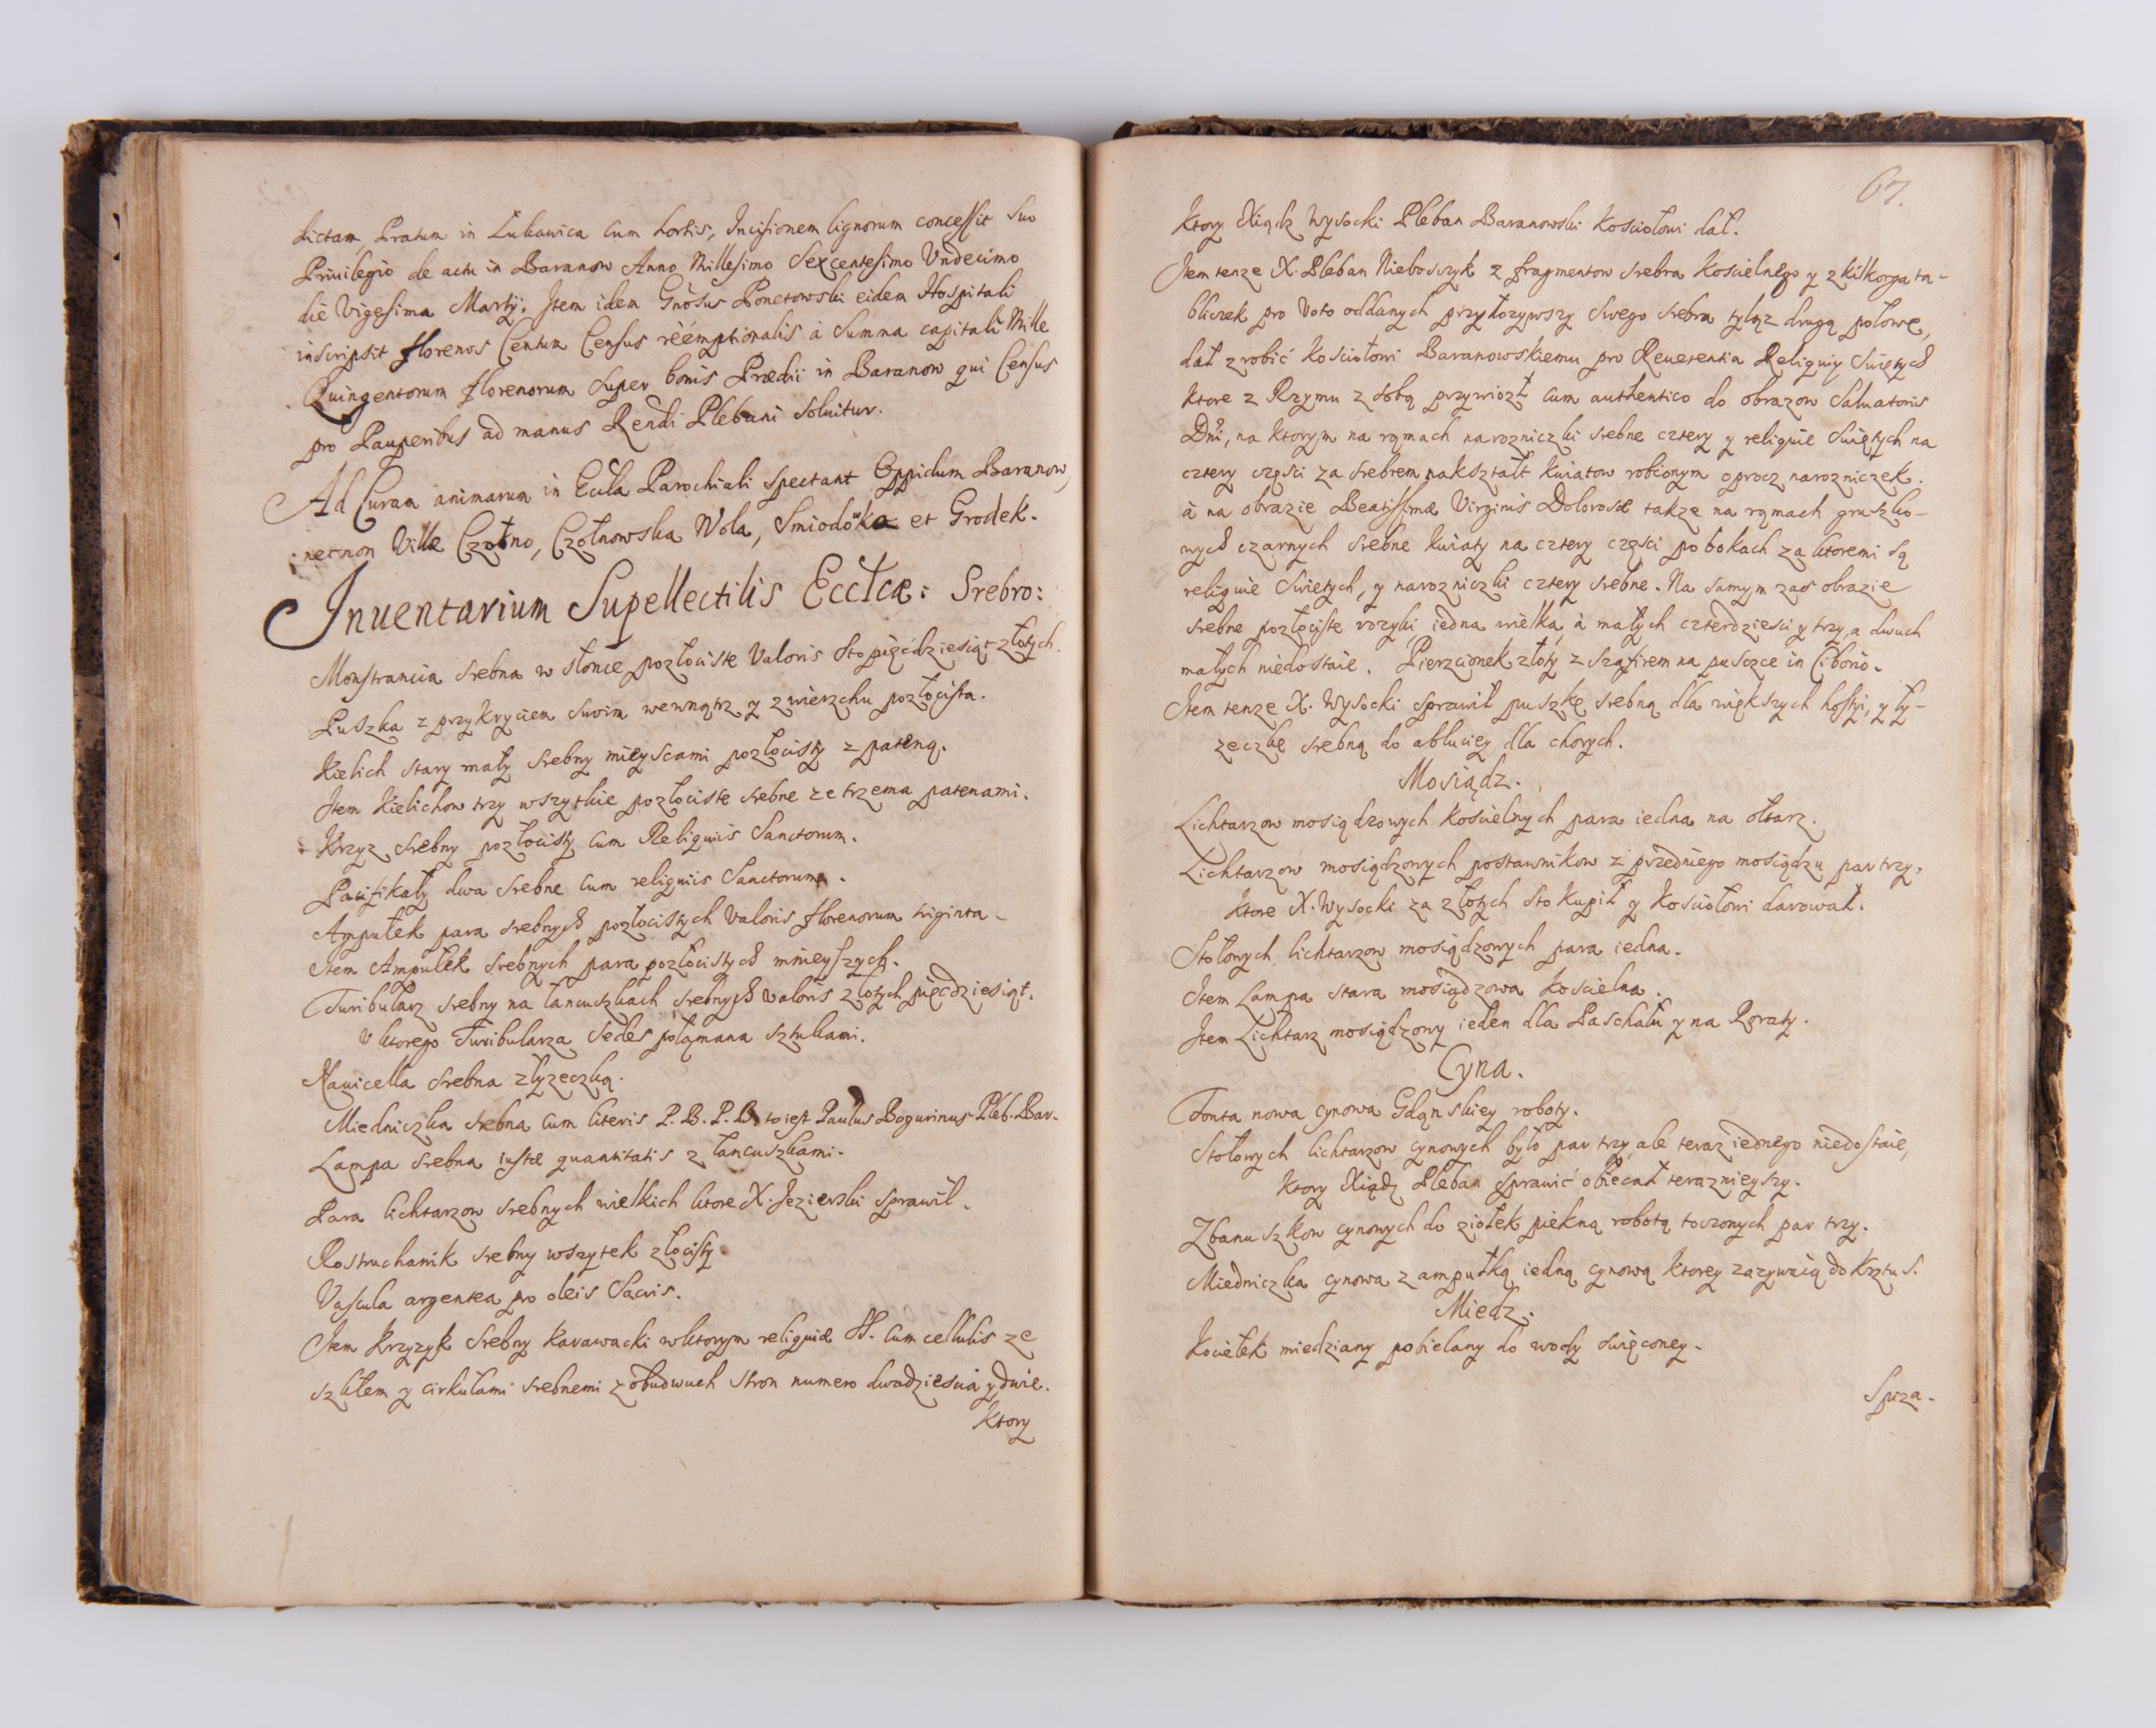 dictam, Pratum in Lukawica cum hortis, Incisionem lignorum concessit suo
Privilegio de actu in Baranow Anno Millesimo Sexcentesimo Undecimo
die Vigesima Martij. Item idem Gnosus Ponetowski eidem Hospitali
inscripsit florenos Centum Census reemptionalis à Summa capitali Mille
Quingentorum florenorum super bonis Prædii in Baranow qui Census
pro Pauperibus ad manus Rendi Plebani Solvitur.
Ad Curam animarum in Eccla Parochiali spectant Oppidum Baranow,
necnon Villæ Czołno, Czołnowska Wola, et Grodek.
Inventarium Supellectilis Ecclæ: Srebro:
Monstrancia srebna w słonce pozłociste Valoris sto pięcdziesiąt złotych.
Puszka z przykryciem swoim wewnątrz y z wierzchu pozłocista.
Kielich stary mały srebny mieyscami pozłocisty z pateną.
Item Kielichow trzy wszytkie pozłociste srebne ze trzema patenami.
Krzyz srebny pozłocisty cum Reliquiis Sanctorum.
Pacifikały dwa srebne cum reliquiis Sanctorum.
Ampułek para srebnych pozłocistych Valoris florenorum triginta.
Item Ampułek srebnych para pozłocistych mnieyszych.
Turibularz srebny na łancuszkach srebnych valoris złotych pięcdziesiąt.
v ktorego Turibularza sedes połąmana sztukami.
Navicella srebna z łyzeczką.
Miedniczka srebna cum literis P. B. P. B. to iest Paulus Bogurinus Pleb. Bar.
Lampa srebna iustæ quantitatis z łancuszkami.
Para lichtarzow srebnych wielkich ktore X. Jezierski sprawił.
Rostruchanik srebny wszytek złocisty
Vascula argentea pro oleis Sacris.
Item Krzyzyk srebny Karawacki w ktorym reliquiæ SS. cum cellulis ze
szkłem y cirkułami srebnemi z obudwuch stron numero dwadziescia y dwie.
Ktory
67.
Ktory Xiądz Wysocki Pleban Baranowski Kosciołowi dał.
Item tenze X. Pleban Nieboszczyk z fragmentow srebra Koscielnego y z kilkorga ta-
bliczek pro Voto oddanych przyłozywszy swego srebra tyląz drugą połowę,
dał zrobić Kosciołowi Baranowskiemu pro Reverentia Reliquiy Swiętych
Ktore z Rzymu z sobą przywiozł cum authentico do obrazow Salvatoris
Dni, na ktorym na rąmach narozniczki srebne cztery y reliquie Swiętych na
cztery częsci za srebrem nakształt kwiatow robionym oprocz narozniczek.
à na obrazie Beatissimæ Virginis Dolorosæ takze na rąmach gruszko-
wych czarnych srebne kwiaty na cztery częsci po bokach za ktoremi są
reliquie Swietych, y narozniczki cztery srebne. Na samym zas obrazie
srebne pozłociste rozyki, iedna wielka, à małych czterdziesci y trzy, a dwuch
małych niedostaie. Pierzcionek złoty z szafirem na puszce in Ciborio.
Item tenze X. Wysocki sprawił puszkę srebną dla większych hostyi, y ły-
zeczkę srebną do abluciey dla chorych.
Mosiądz.
Lichtarzow mosiądzowych Koscielnych para iedna na ołtarz.
Lichtarzow mosiądzowych postawnikow z przedniego mosiądzu par trzy.
Ktore X. Wysocki za złotych sto Kupił y Kosciołowi darował.
Stołowych lichtarzow mosiądzowych para iedna.
Item Lampa stara mosiądzowa Koscielna.
Item Lichtarz mosiądzowy ieden dla Paschału y na Roraty.
Cyna.
Fonta nowa cynowa Gdąnskiey roboty.
Stołowych lichtarzow cynowych było par trzy, ale teraz iednego niedostaie,
Ktory Xiądz Pleban sprawić obiecał terazniejszy.
Zbanuszkow cynowych do ziołek piekną robotą toczonych par trzy.
Miedniczka cynowa z ampułką iedną cynową ktorey zazywaią do Krztu S.
Miedz.
Kociełek miedziany pobielany do wody swięconey.
Spiza.